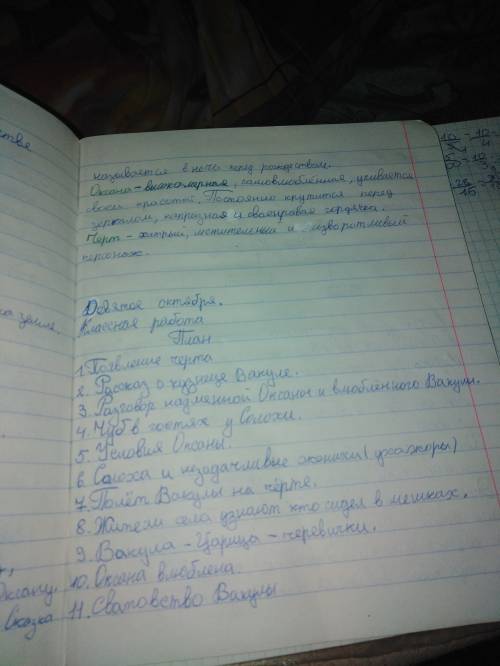 называется в ночь перед рождеством.
Оксана - высокомерная, самовлюблённая, упивается
своей красотой. Постоянно крутится перед
зеркалом, капризная и своенравная гордячка.
Черт - хитрый, мстительный и изворотливый
персонаж.
Девятое октября.
Классная работа
План
1. Появление черта
2. Рассказ о кузнеце Вакуле.
3. Разговор надменной Оксаны и влюблённого Вакулы.
4. Чуб в гостях у Солохи.
5. Условия Оксаны.
6. Солоха и незадачливые женихи (ухажоры)
7. Полёт Вакулы на чёрте.
8. Жители села узнают кто сидел в мешках.
9. Вакула - Царица - черевички.
10. Оксана влюблена.
11. Сватовство Вакулы
Оксану.
Сказка